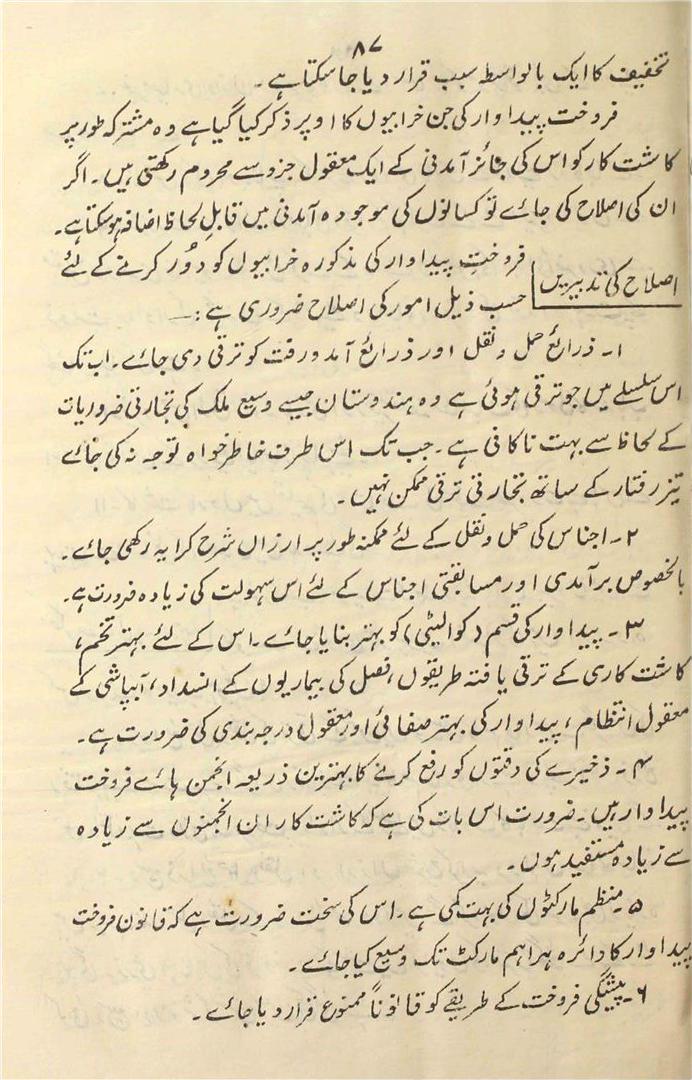 ۸۷
تخفیف کا ایک بالواسطہ سبب قرار دیا جا سکتا ہے۔
فروخت پیداوار کی جن خرابیوں کا اوپر ذکر کیا گیا ہے وہ مشترکہ طور پر
کاشت کار کو اس کی جائز آمدنی کے ایک معقول جزو سے محروم رکھتی ہیں۔ اگر
ان کی اصلاح کی جائے تو کسانوں کی موجودہ آمدنی میں قابلِ لحاظ اضافہ ہو سکتا ہے۔
اصلاح کی تدبیریں
فروختِ پیداوار کی مذکورہ خرابیوں کو دُور کرنے کے لئے
حسب ذیل امور کی اصلاح ضروری ہے :۔
۱۔ ذرائع حمل و نقل اور ذرائع آمدورفت کو ترقی دی جائے۔ اب تک
اس سلسلے میں جو ترقی ہوئی ہے وہ ہندوستان جیسے وسیع ملک کی تجارتی ضروریات
کے لحاظ سے بہت ناکافی ہے۔ جب تک اس طرف خاطر خواہ توجہ نہ کی جائے
تیز رفتار کے ساتھ تجارتی ترقی ممکن نہیں۔
۲۔ اجناس کی حمل و نقل کے لئے ممکنہ طور پر ارزاں شرح کرایہ رکھی جائے۔
بالخصوص برآمدی اور مسابقتی اجناس کے لئے اس سہولت کی زیادہ ضرورت ہے۔
۳۔ پیداوار کی قسم (کوالیٹی) کو بہتر بنایا جائے۔ اس کے لئے بہتر تخم،
کاشت کاری کے ترقی یافتہ طریقوں، فصل کی بیماریوں کے انسداد، آبپاشی کے
معقول انتظام، پیداوار کی بہتر صفائی اور معقول درجہ بندی کی ضرورت ہے۔
۴۔ ذخیرے کی دقتوں کو رفع کرنے کا بہترین ذریعہ انجمن ہائے فروخت
پیداوار ہیں۔ ضرورت اس بات کی ہے کہ کاشت کار ان انجمنوں سے زیادہ
سے زیادہ مستفید ہوں۔
۵۔ منظم مارکٹوں کی بہت کمی ہے۔ اس کی سخت ضرورت ہے کہ قانون فروخت
پیداوار کا دائرہ ہر اہم مارکٹ تک وسیع کیا جائے۔
۶۔ پیشگی فروخت کے طریقے کو قانوناً ممنوع قرار دیا جائے۔